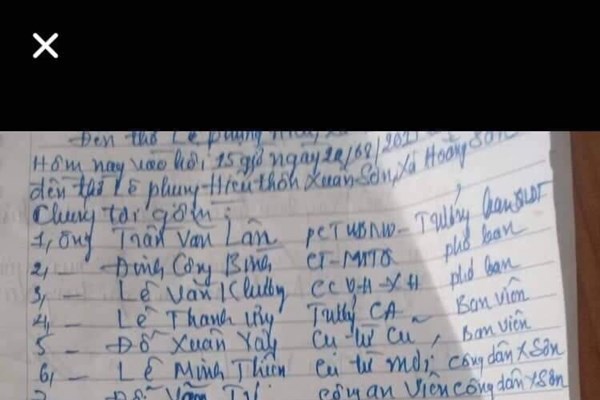 Đền thờ Lê Phụng
Hôm nay vào hồi 15 giờ ngày 22/08/202
đền thờ Lê phụng Hiểu thôn Xuân Sơn, Xã Hoằng Sơn
Chúng tôi gồm:
1, Ông Trần Văn Lân PCTUBND - Trưởng ban QLDT
2, - Đinh Công Bình CT-MTTQ phó ban
3, - Lê Văn Khương CCVH-XH phó ban
4, - Lê Thanh Trưởng CA - Ban viên
5 - Đỗ Xuân Cụ từ Cũ, Ban viên
6, - Lê Minh Thiên Cụ từ mới, công dân X Sơn
Đỗ Văn công an viên công dân X Sơn